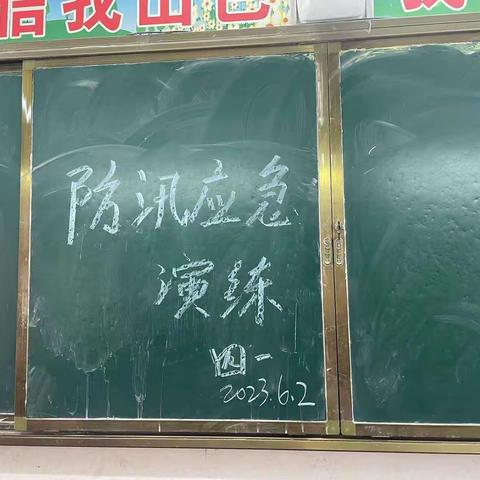 防汛应急
演练
四一
2023.6.2